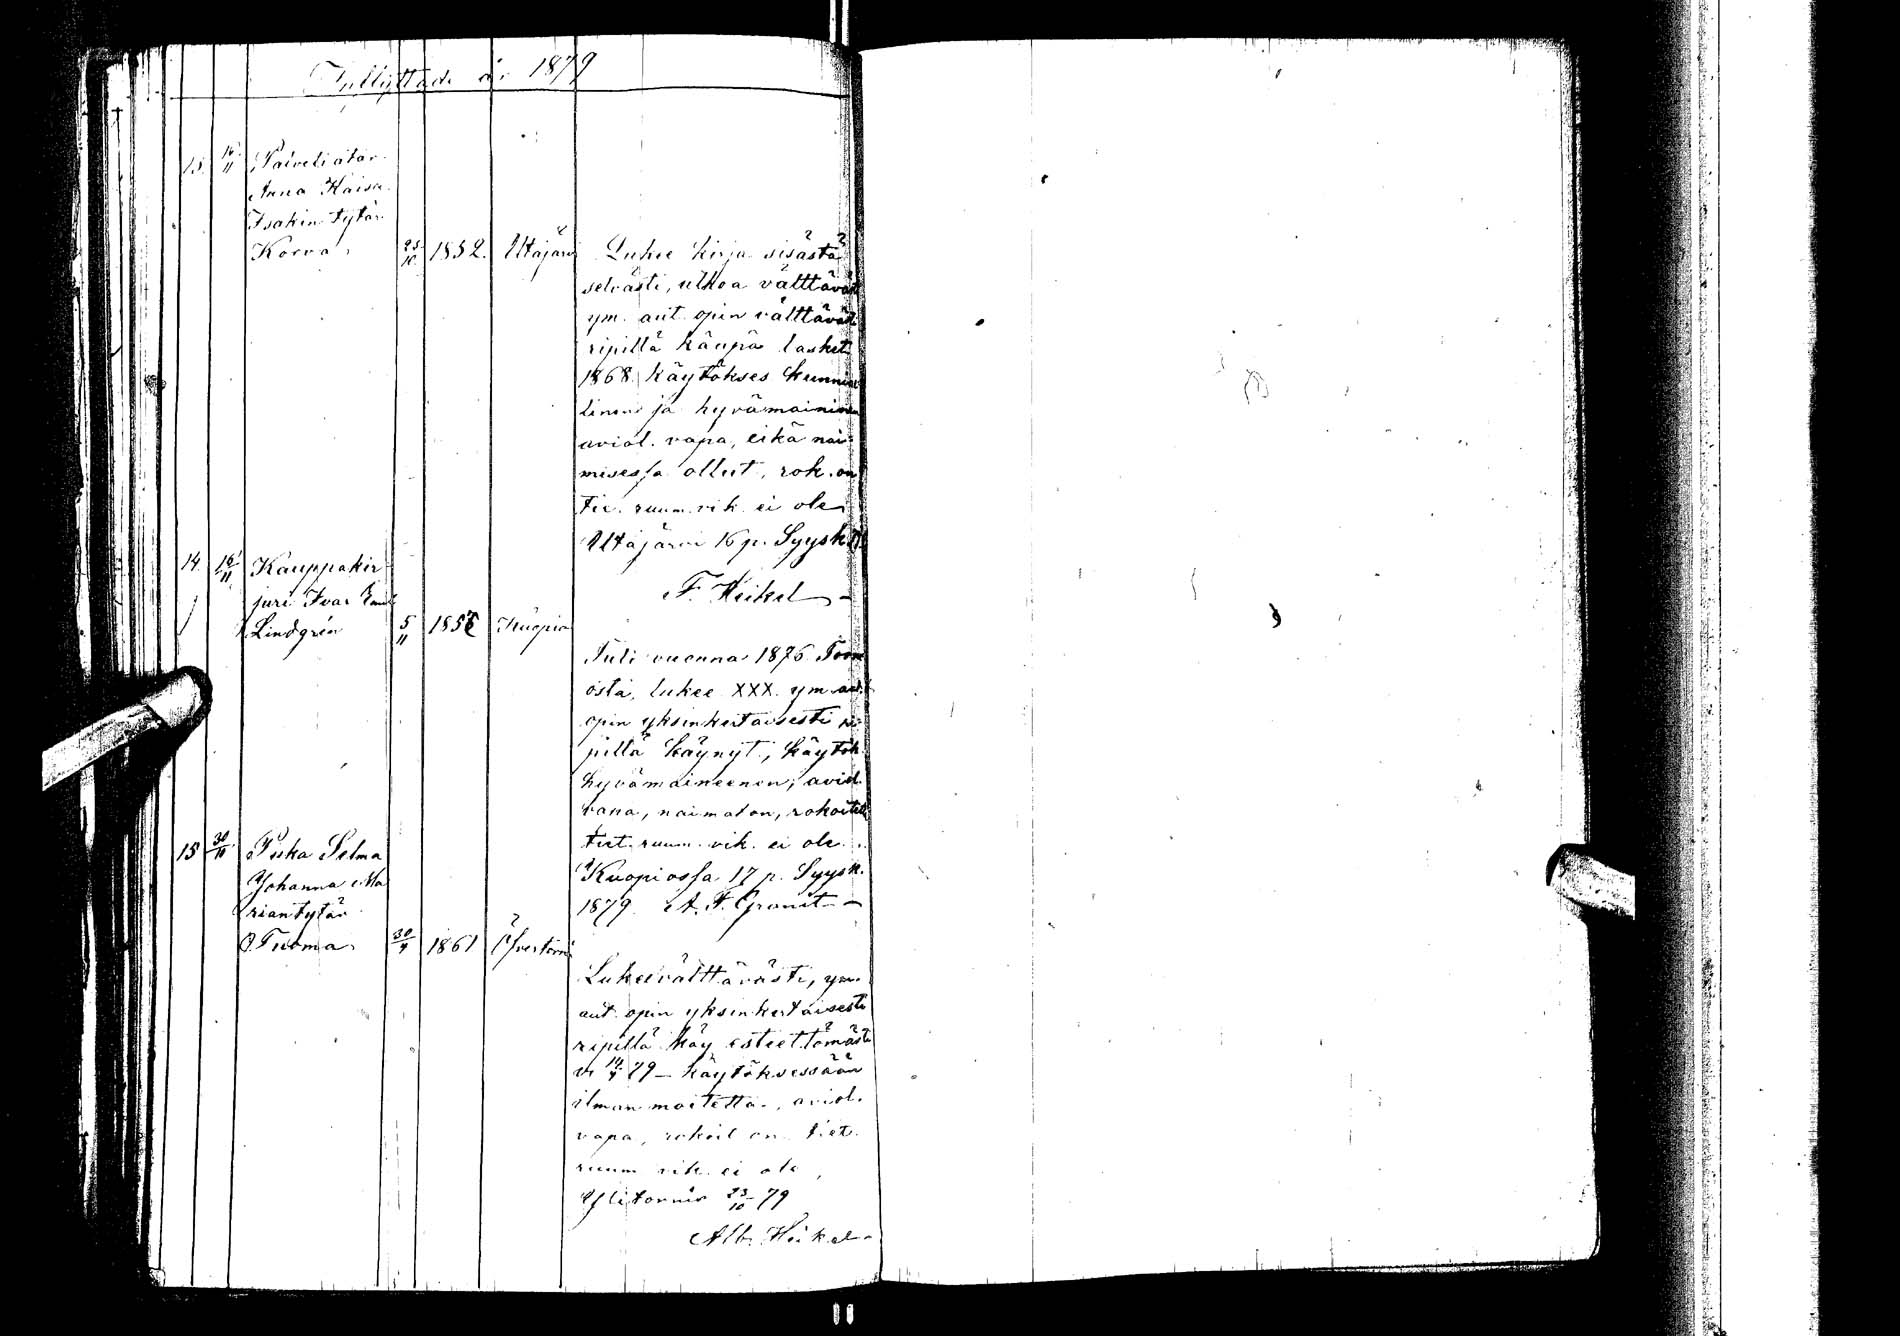 Inflyttade år 1879
13. 16/11 Palveliatar
Anna Kaisa
Isakin tytär
Korva 25/10 1852. Utajärvi Lukee kirja sisästä
selvästi, ulkoa välttäväst
ym. aut. opin välttäväst
ripillä käupä lasket
1868. käytökses kunnial
linen ja hyvämaininen
aviol. vapa, eikä nai-
misessa ollut, rok. on
tie. ruum. vik. ei ole
Utajärvi 16 p. Syysk. 79
14. 16/11 Kauppakir-
F. Heikel
juri Ivar Emil
Lindgrén 5/11 185 Kuopio
Tuli vuonna 1876 Torni
osta, lukee XXX. ym. aut.
opin yksinkertaisesti ri
pillä käynyt, käytök
hyvämaineenen, aviol.
vapa, naimaton, rokoitettu
tiet. ruum. vik. ei ole.
15 30/10 Piika Selma
Kuopiossa 17 p. Syysk.
Johanna Ma
riantytär
1879. A. F. Granit
O. Tuoma 30/9 1861 Öfvertorneå
Lukee välttävästi, ym.
aut. opin yksinkertaisesti
ripillä käy esteettömästi
v. 14/9 79 – käytöksessään
ilman moitetta, aviol.
vapa, rokoit on. tiet.
ruum vik. ei ole,
Ylitornio 23/10 79
Alb. Heikel